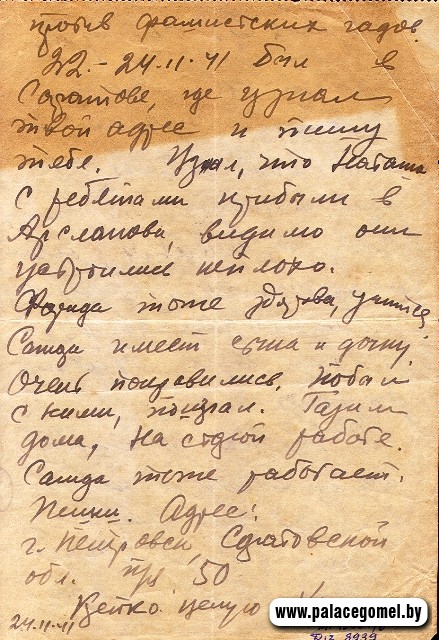 против фашистских гадов.
22.-24.11.41 был в
Саратове, где узнал
твой адрес и пишу
тебе. Узнал, что Наташа
с ребятами прибыли в
Арсланова, видимо они
устроились неплохо.
тоже здорова, учится
Саида имеет сына и дочку.
Очень понравились. Побыл
с ними, поиграл. Газим
дома, на старой работе.
Саида тоже работает.
Пиши. Адрес:
г. Петровск, Саратовской
обл. п/я 50
Крепко целую
24.11.41
www.palacegomel.by